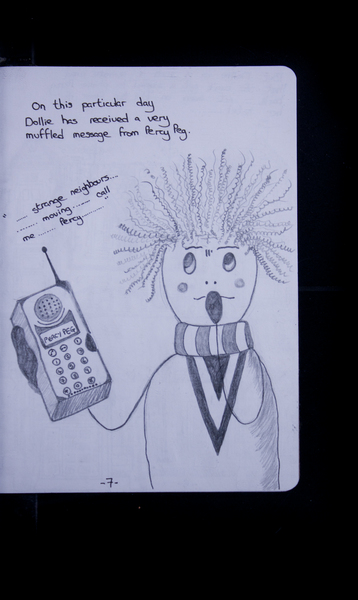 On this particular day
Dollie has received a very
muffled message from Percy Peg.
" ..... strange neighbours...
....... moving ...... call
me ....... Percy ........."
PERCY PEG
-7-